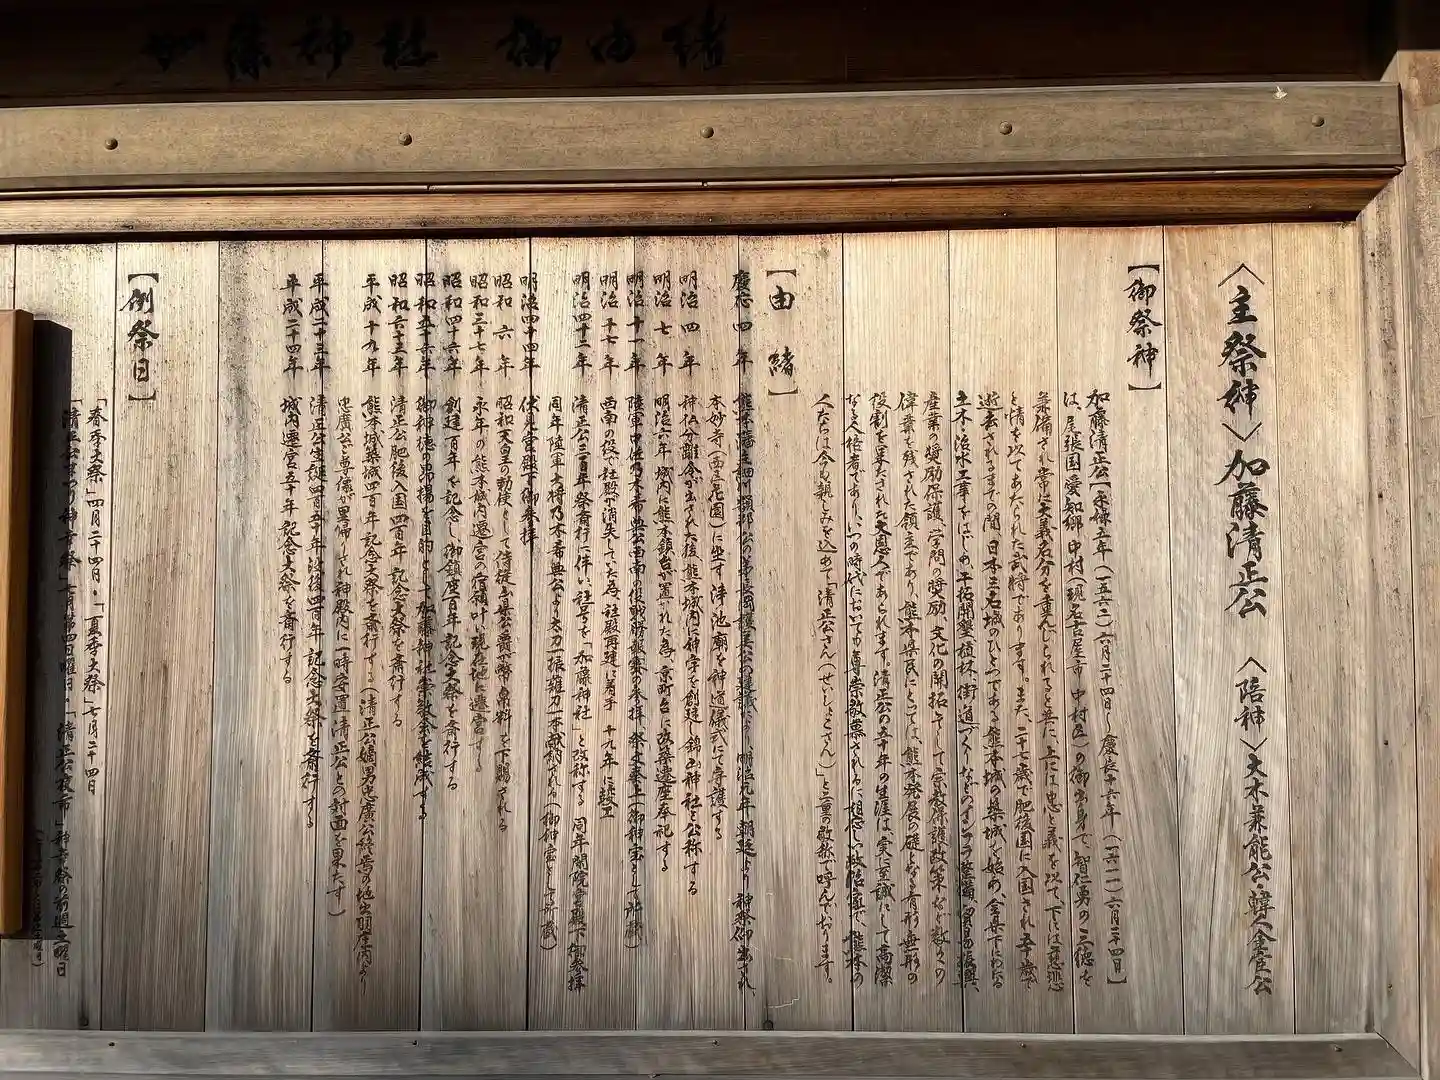 加藤神社 御由緒
〈主祭神〉加藤清正公 〈陪神〉大木兼能公・韓人金宦公
【御祭神】
加藤清正公【永禄五年(一五六二)六月二十四日〜慶長十六年(一六一一)六月二十四日】
は、尾張国愛知郷中村(現名古屋市中村区)の御出身で、智仁勇の三徳を
兼備され常に大義名分を重んじられると共に、上には忠と義を以て、下には慈悲
と情を以てあたられた武将であります。また、二十七歳で肥後国に入国され五十歳で
逝去されるまでの間、日本三名城のひとつである熊本城の築城を始め、全県下にわたる
土木・治水工事をはじめ、干拓開墾、植林、街道づくりなどのインフラ整備、貿易振興、
産業の奨励保護、学問の奨励、文化の開拓、そして宗教保護政策など数々の
偉業を残された領主であり、熊本県民にとっては、熊本発展の礎となる有形無形の
役割を果たされた大恩人であられます。清正公の五十年の生涯は、実に至誠にして高潔
なる人格者であり、いつの時代においても尊崇敬慕されるに相応しい政治家で、熊本の
人たちは今も親しみを込めて「清正公さん(せいしょこさん)」と二重の敬称で呼んでおります。
【由緒】
慶応四年 熊本藩主細川韶邦公の弟長岡護美公の 明治元年 朝廷より神祭御
本妙寺(西 花園)に坐す浄池廟を神道儀式にて守護する
明治四年 神仏分離令が出された後熊本城内に神宇を創建し錦山神社と公称する
明治七年 明治六年城内に熊本鎮台が置かれた為、京町台に改築遷座奉祀する
明治十一年 陸軍中佐乃木希典公西南の役戦勝報賽の参拝、祭文奏上(御神宝として所蔵)
明治十七年 西南の役で社殿が消失していた為、社殿再建に着手 十九年に竣工
明治四十二年 清正公三百年祭斎行に伴い、社号を「加藤神社」と改称する 同年閑院宮殿下御参拝
同年陸軍大将乃木希典公より太刀一振薙刀一本献納される(御神宝として所蔵)
明治四十四年 伏見宮殿下御参拝
昭和六年 昭和天皇の勅使として侍従 公爵が幣帛料を下賜される
昭和三十七年 永年の熊本城内遷宮の宿願叶い現在地に遷宮する
昭和四十六年 創建百年を記念し、御鎮座百年記念大祭を斎行する
昭和五十六年 御神徳の昂揚を目的として加藤神社崇敬会を結成する
昭和六十三年 清正公肥後入国四百年記念大祭を斎行する
平成十九年 熊本城築城四百年記念大祭を斎行する(清正公嫡男忠廣公終焉の地出羽庄内より
忠廣公御尊儀が里帰りされ神殿内に一時安置 清正公との対面を果たす)
平成二十三年 清正公生誕四百五十年没後四百年記念大祭を斎行する
平成二十四年 城内遷宮五十年記念大祭を斎行する
【例祭日】
「春季大祭」四月二十四日・「夏季大祭」七月二十四日
「清正公まつり神幸祭」七月第四日曜日・「清正公夜市」神幸祭の前週土曜日